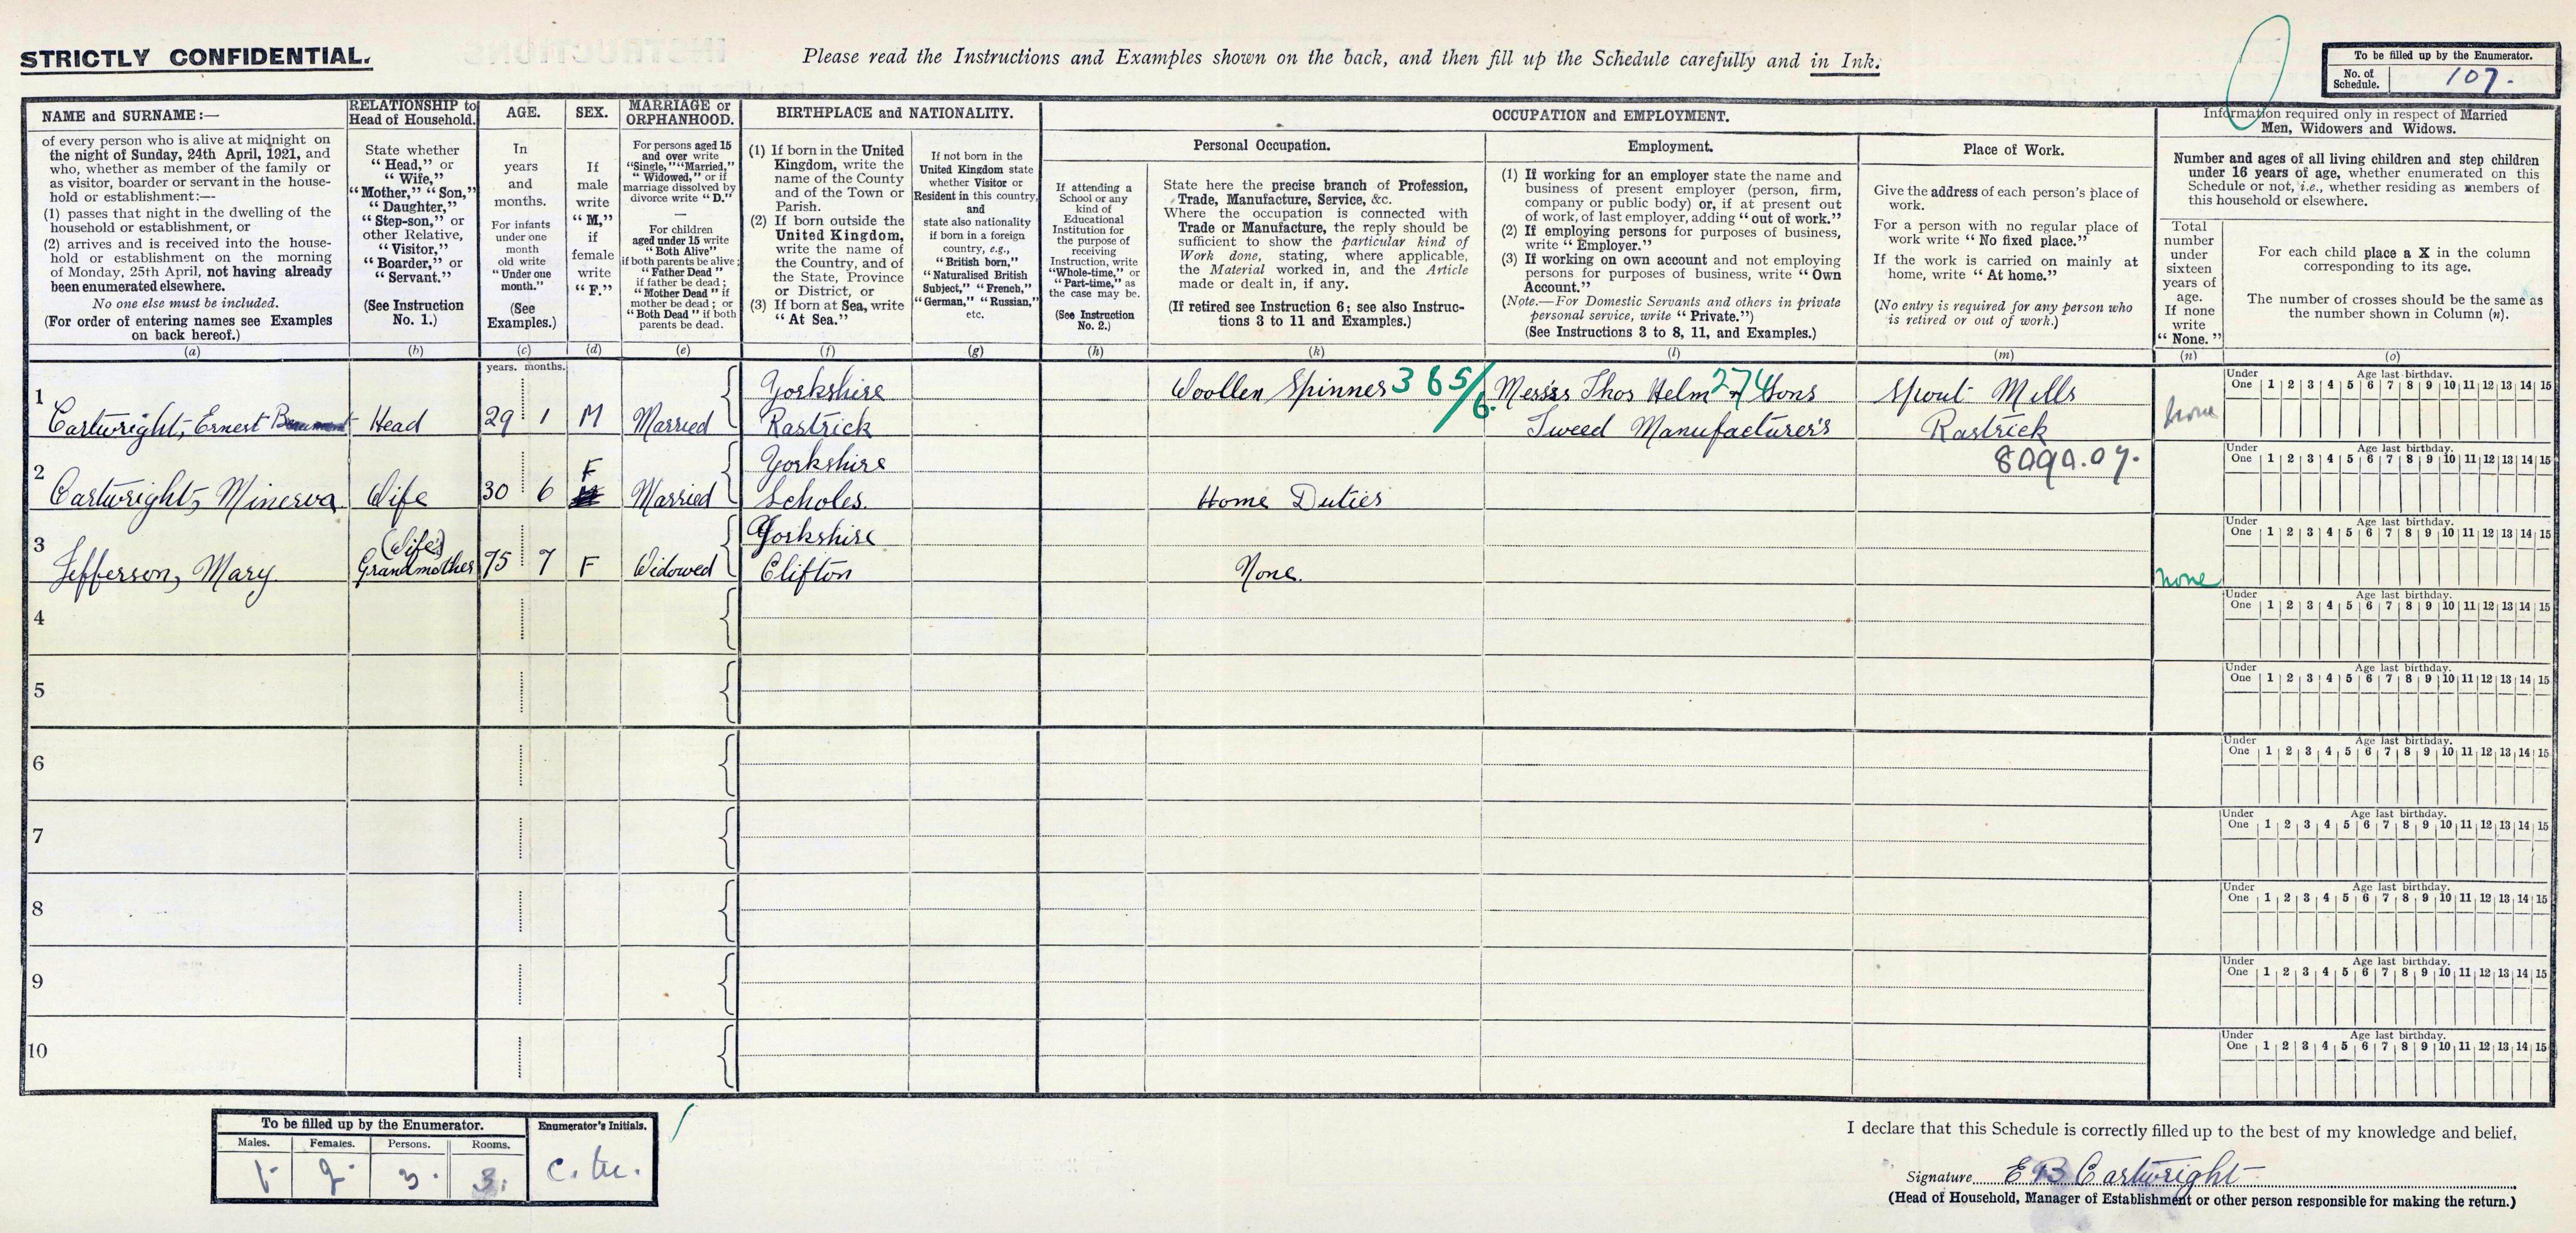 STRICTLY CONFIDENTIAL.
Please read the Instructions and Examples shown on the back, and then fill up the Schedule carefully and in Ink.
To be filled up by the Enumerator.
No. of Schedule. 107.
NAME and SURNAME:—
of every person who is alive at midnight on
the night of Sunday, 24th April, 1921, and
who, whether as member of the family or
as visitor, boarder or servant in the house-
hold or establishment:—
(1) passes that night in the dwelling of the
household or establishment, or
(2) arrives and is received into the house-
hold or establishment on the morning
of Monday, 25th April, not having already
been enumerated elsewhere.
No one else must be included.
(For order of entering names see Examples
on back hereof.)
(a)
RELATIONSHIP to
Head of Household.
State whether
"Head," or
"Wife,"
"Mother," "Son,"
"Daughter,"
"Step-son," or
other Relative,
"Visitor,"
"Boarder," or
"Servant."
(See Instruction
No. 1.)
(b)
AGE.
In
years
and
months.
For infants
under one
month
old write
"Under one
month."
(See
Examples.)
(c)
SEX.
If
male
write
"M,"
if
female
write
"F."
(d)
MARRIAGE or
ORPHANHOOD.
For persons aged 15
and over write
"Single," "Married,"
"Widowed," or if
marriage dissolved by
divorce write "D."
—
For children
aged under 15 write
"Both Alive"
if both parents be alive;
"Father Dead"
if father be dead;
"Mother Dead" if
mother be dead; or
"Both Dead" if both
parents be dead.
(e)
BIRTHPLACE and NATIONALITY.
(1) If born in the United
Kingdom, write the
name of the County
and of the Town or
Parish.
(2) If born outside the
United Kingdom,
write the name of
the Country, and of
the State, Province
or District, or
(3) If born at Sea, write
"At Sea."
(f)
If not born in the
United Kingdom state
whether Visitor or
Resident in this country,
and
state also nationality
if born in a foreign
country, e.g.,
"British born,"
"Naturalised British
Subject," "French,"
"German," "Russian,"
etc.
(g)
OCCUPATION and EMPLOYMENT.
If attending a
School or any
kind of
Educational
Institution for
the purpose of
receiving
Instruction, write
"Whole-time," or
"Part-time," as
the case may be.
(See Instruction
No. 2.)
(h)
Personal Occupation.
State here the precise branch of Profession,
Trade, Manufacture, Service, &c.
Where the occupation is connected with
Trade or Manufacture, the reply should be
sufficient to show the particular kind of
Work done, stating, where applicable,
the Material worked in, and the Article
made or dealt in, if any.
(If retired see Instruction 6; see also Instruc-
tions 3 to 11 and Examples.)
(k)
Employment.
(1) If working for an employer state the name and
business of present employer (person, firm,
company or public body) or, if at present out
of work, of last employer, adding "out of work."
(2) If employing persons for purposes of business,
write "Employer."
(3) If working on own account and not employing
persons for purposes of business, write "Own
Account."
(Note.—For Domestic Servants and others in private
personal service, write "Private.")
(See Instructions 3 to 8, 11, and Examples.)
(l)
Place of Work.
Give the address of each person's place of
work.
For a person with no regular place of
work write "No fixed place."
If the work is carried on mainly at
home, write "At home."
(No entry is required for any person who
is retired or out of work.)
(m)
Information required only in respect of Married
Men, Widowers and Widows.
Number and ages of all living children and step children
under 16 years of age, whether enumerated on this
Schedule or not, i.e., whether residing as members of
this household or elsewhere.
Total
number
under
sixteen
years of
age.
If none
write
"None."
(n)
For each child place a X in the column
corresponding to its age.
The number of crosses should be the same as
the number shown in Column (n).
(o)
years. months.
1 Cartwright, Ernest Beaumont Head 29 1 M Married Yorkshire Rastrick Woollen Spinner 365/6. Messrs Thos Helm & Sons 274 Tweed Manufacturer's Spout Mills Rastrick none
Under One Age last birthday. 1 2 3 4 5 6 7 8 9 10 11 12 13 14 15
8090.07.
2 Cartwright, Minerva Wife 30 6 F Married Yorkshire Scholes. Home Duties
Under One Age last birthday. 1 2 3 4 5 6 7 8 9 10 11 12 13 14 15
3 Jefferson, Mary (Wife's) Grandmother 75 7 F Widowed Yorkshire Clifton None. none
Under One Age last birthday. 1 2 3 4 5 6 7 8 9 10 11 12 13 14 15
4 Under One Age last birthday. 1 2 3 4 5 6 7 8 9 10 11 12 13 14 15
5 Under One Age last birthday. 1 2 3 4 5 6 7 8 9 10 11 12 13 14 15
6 Under One Age last birthday. 1 2 3 4 5 6 7 8 9 10 11 12 13 14 15
7 Under One Age last birthday. 1 2 3 4 5 6 7 8 9 10 11 12 13 14 15
8 Under One Age last birthday. 1 2 3 4 5 6 7 8 9 10 11 12 13 14 15
9 Under One Age last birthday. 1 2 3 4 5 6 7 8 9 10 11 12 13 14 15
10 Under One Age last birthday. 1 2 3 4 5 6 7 8 9 10 11 12 13 14 15
To be filled up by the Enumerator.
Males. Females. Persons. Rooms.
1. 2. 3. 3.
Enumerator's Initials.
I declare that this Schedule is correctly filled up to the best of my knowledge and belief,
Signature E B Cartwright
(Head of Household, Manager of Establishment or other person responsible for making the return.)